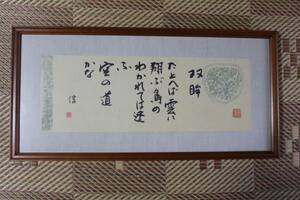 双眸
たとへば雲に
翔ぶ鳥の
わかれては逢
ふ
空の道
かな